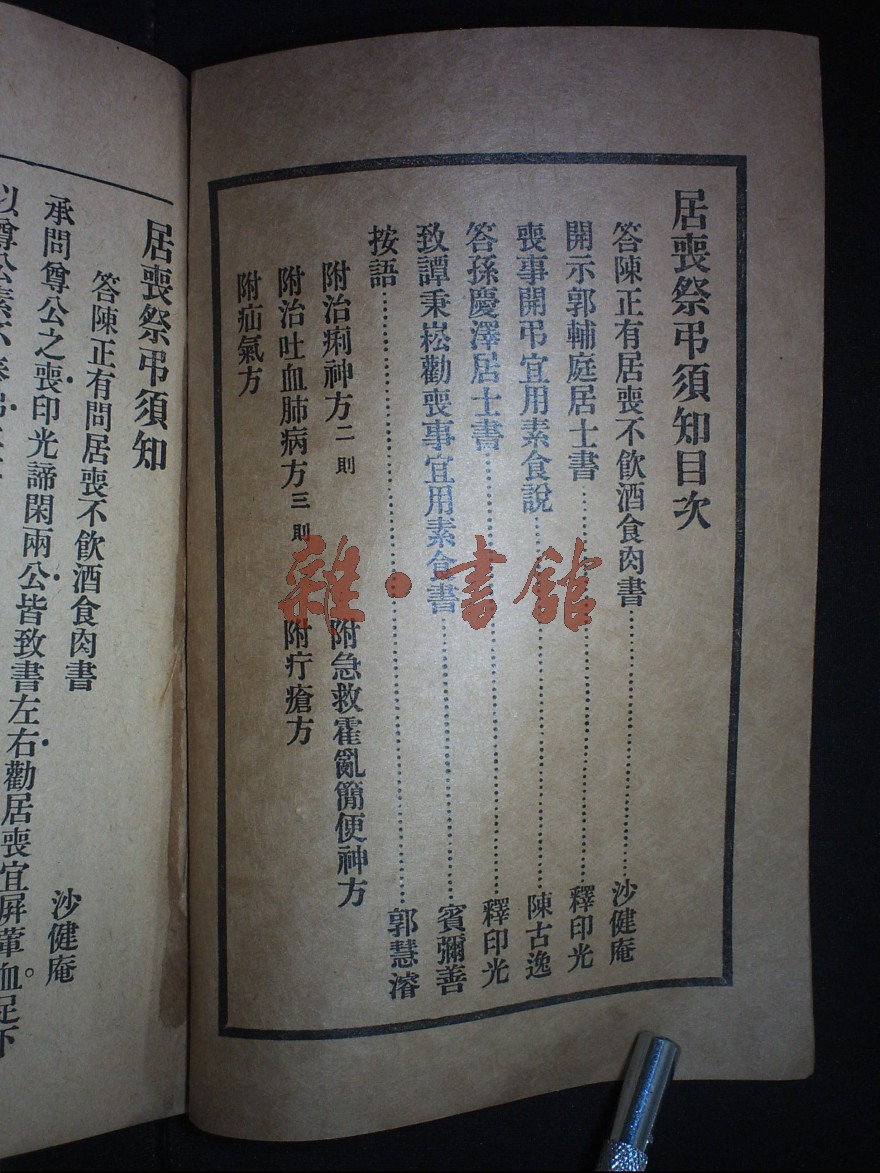 居喪祭弔須知目次
答陳正有居喪不飲酒食肉書…………沙健庵
開示郭輔庭居士書…………釋印光
喪事開弔宜用素食說…………陳古逸
答孫慶澤居士書…………釋印光
致譚秉崧勸喪事宜用素食書…………賓彌善
按語…………郭慧濬
附治痢神方二則 附急救霍亂簡便神方
附治吐血肺病方三則 附疔瘡方
附疝氣方
雜·書館
居喪祭弔須知
答陳正有問居喪不飲酒食肉書 沙健庵
承問尊公之喪印光諦閑兩公皆致書左右勸居喪宜屏葷血足下
以尊公素